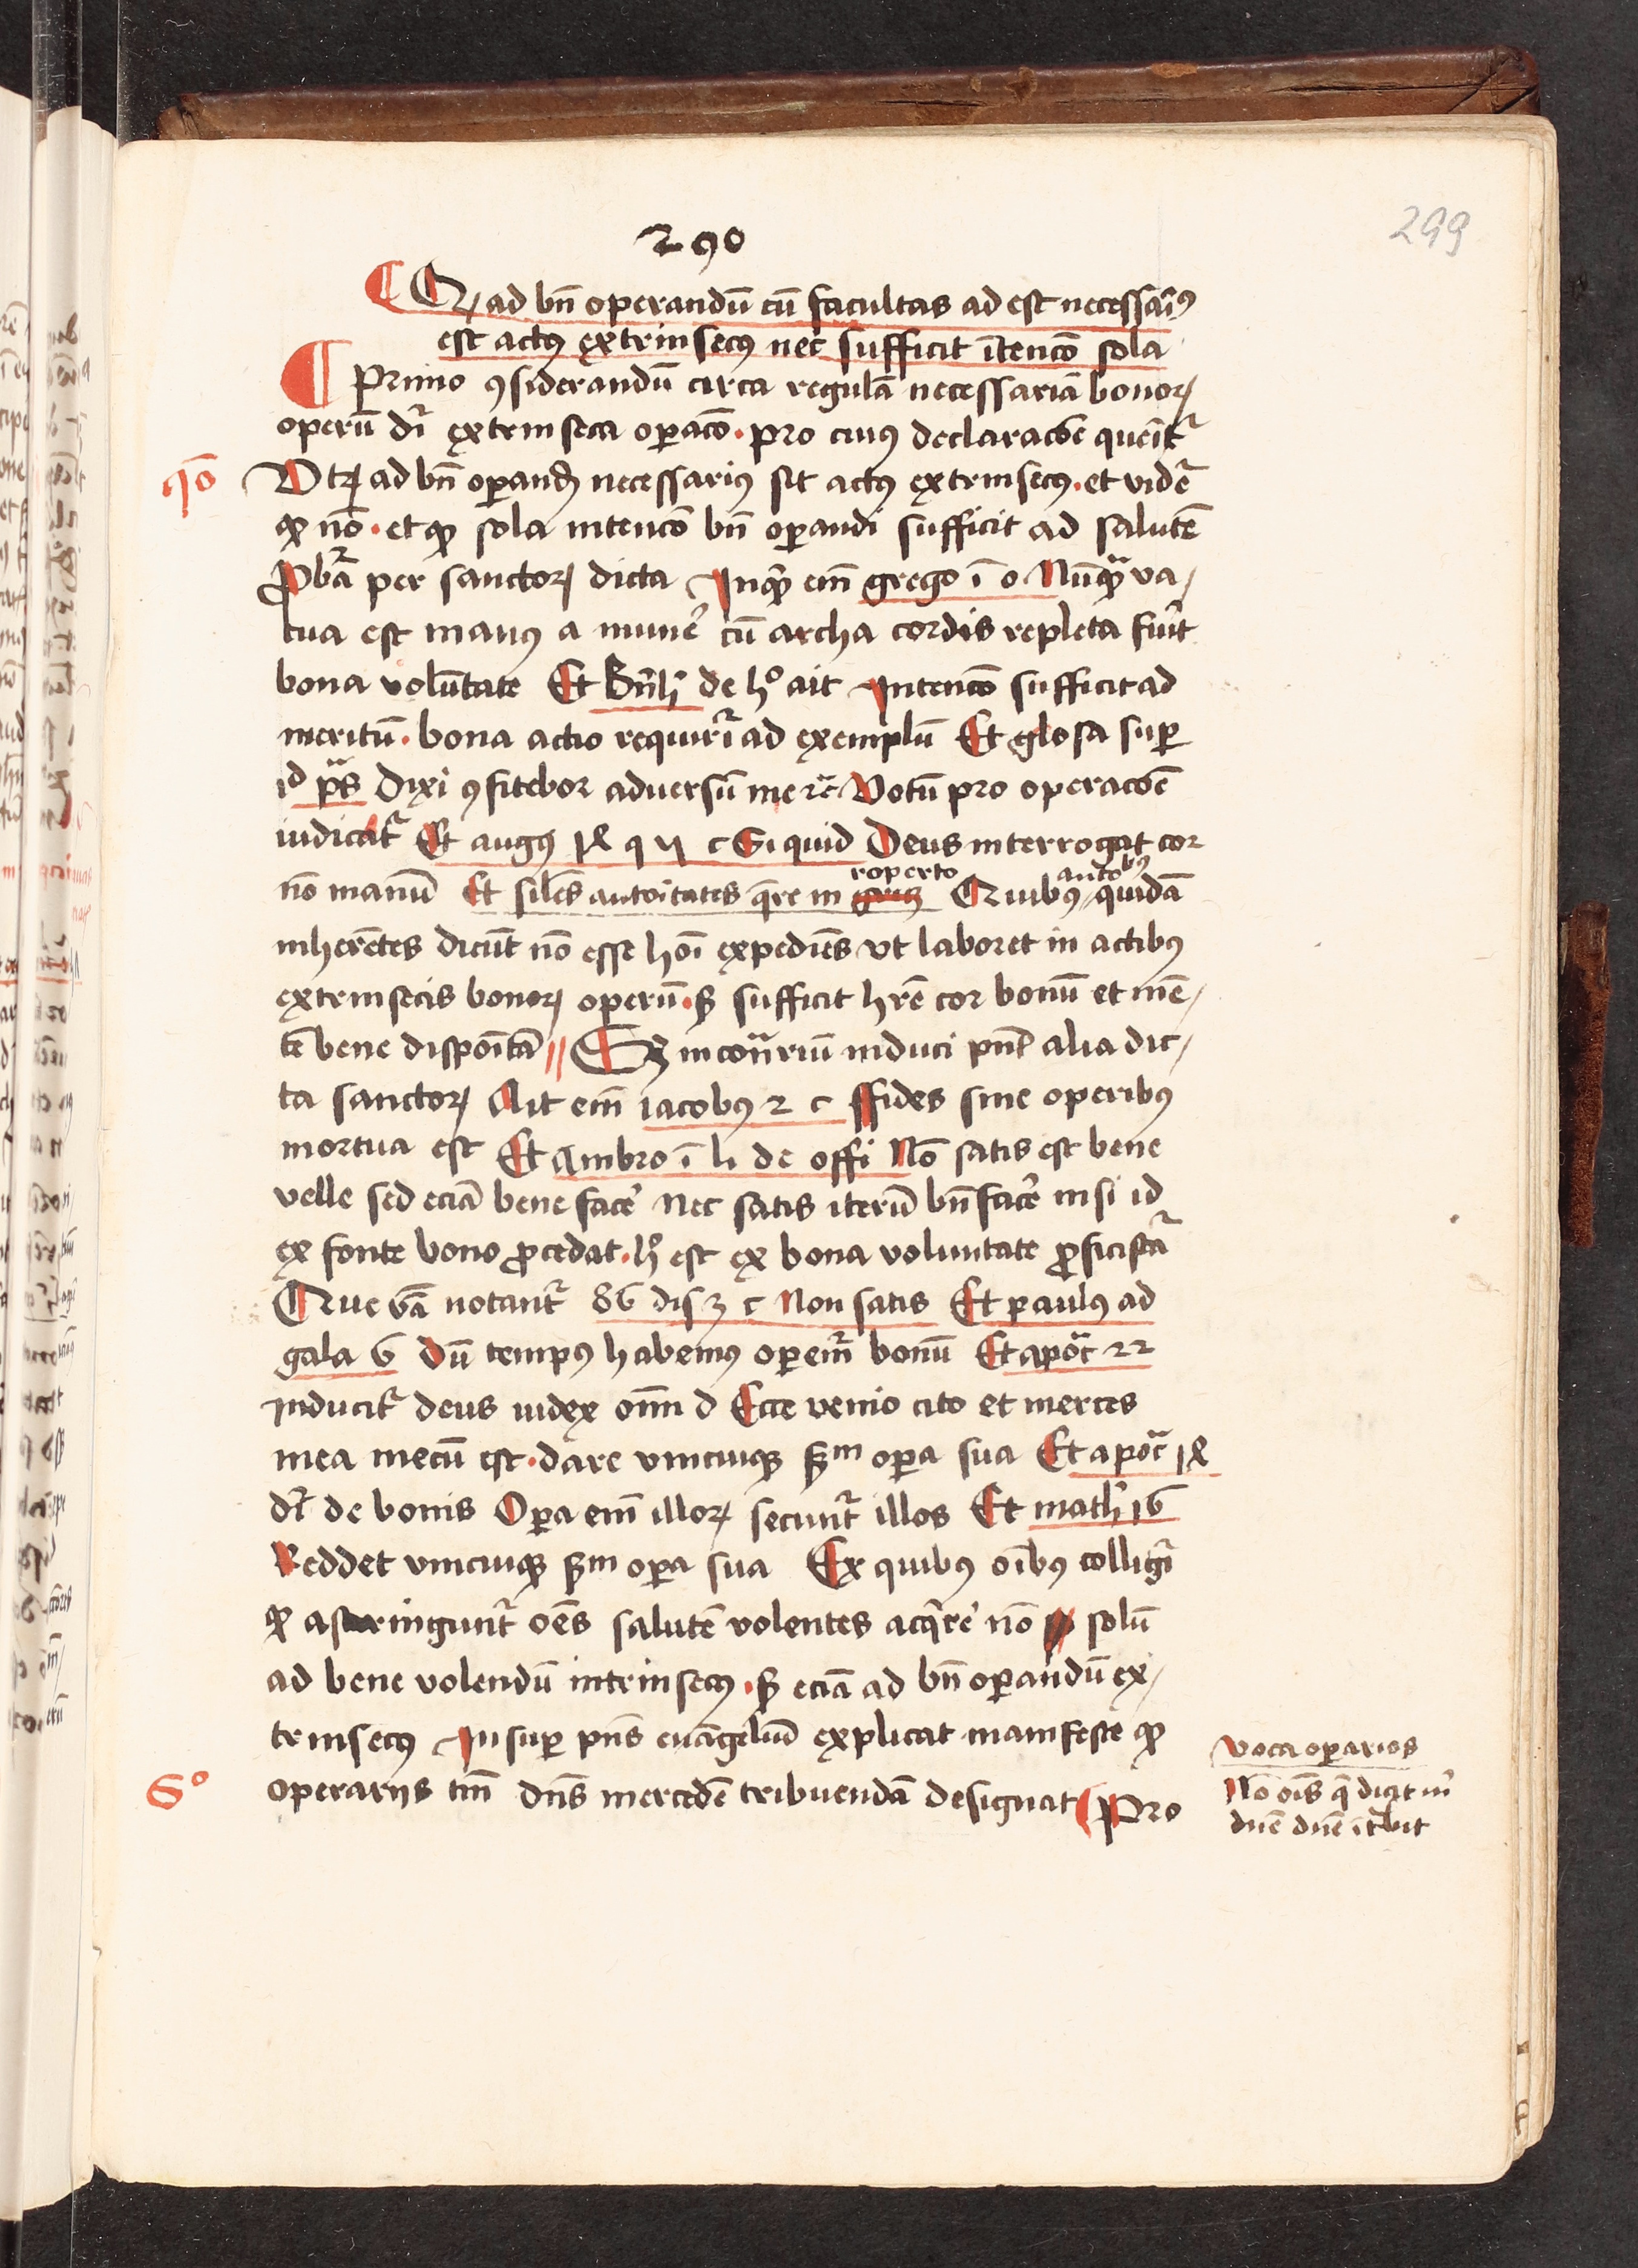 299
290
Q ad bn̄ operandū cū facultas ad est necessariꝯ
est actꝯ extrinsecꝯ nec sufficit ītencō sola
Primo ꝯsiderandū circa regulā necessariā bonoꝝ
operū dr̄ extrinseca oꝑacō · pro cuiꝯ declaracōe querit᷑
qō
Vtrꝫ ad bn̄ oꝑand necessariꝯ sit actꝯ extrinsecꝯ · et videt᷑
ꝙ nō · et ꝙ sola intencō bn̄ oꝑandi sufficit ad salutē
ꝓbat᷑ per sanctoꝝ dicta Inqͥt em̄ grego ī o Nūqͣ va/
cua est manꝯ a munē cū archa cordis repleta fuīt
bona volūtate Et Bn̄h de hº ait Intencō sufficit ad
meritū · bona actio requirit᷑ ad exemplū Et glosa suꝑ
id pͣs Dixi ꝯfitebor adversū me ⁊c̄ Votū pro operacōe
iudicat᷑ Et augꝯ 14 q 5 c Si quid Deus interrogat cor
nō manū Et silēs autoitates q̄re in roperto Quibꝯ auctoᵇꝯ quidā
inherētes dicūt nō esse hoī expediēs vt laboret in actibꝯ
extrinsecis bonoꝝ operū · sꝫ sufficit hr̄e cor bonū et mē/
tē bene dispoītā // Sꝫ in cont̄riū induci pn̄t alia dic/
ta sanctoꝝ Ait em̄ iacobꝯ 2 c ffides sine operibꝯ
mortua est Et Ambro ī li de offi Nō satis est bene
velle sed eciā bene facē nec satis iterū bn̄ facē nisi id
ex fonte bono ꝓcedat · hº est ex bona voluntate ꝓficiscat᷑
Que vba notant᷑ 86 dis 3 c Non satis Et paulꝯ ad
gala 6 Dū tempꝯ habemꝯ operem᷑ bonū Et apoc̄ 22
inducit᷑ deus iudex om̄i d Ecce venio cito et merces
mea mecū est · dare vnicuiqꝫ sꝫᵐ oꝑa sua Et apoc̄ 14
dr̄ de bonis Oꝑa em̄ illoꝝ secunt᷑ illos Et math 16
Reddet vnicuiqꝫ sꝫᵐ oꝑa sua Ex quibꝯ oībꝯ colligit᷑
ꝙ astringunt᷑ oēs salutē volentes acq̄rē nō solū
ad bene volendū intrinsecꝯ · sꝫ eciā ad bn̄ oꝑandū ex/
trinsecꝯ Insuꝑ pn̄s euāgeliū explicat manifeste ꝙ
operarijs tm̄ dn̄s mercedē tribuendā designat Pro
Sº
voca oꝑarios
Nō oīs q̄ dicit m̄
dnē dnē ītᵃbit